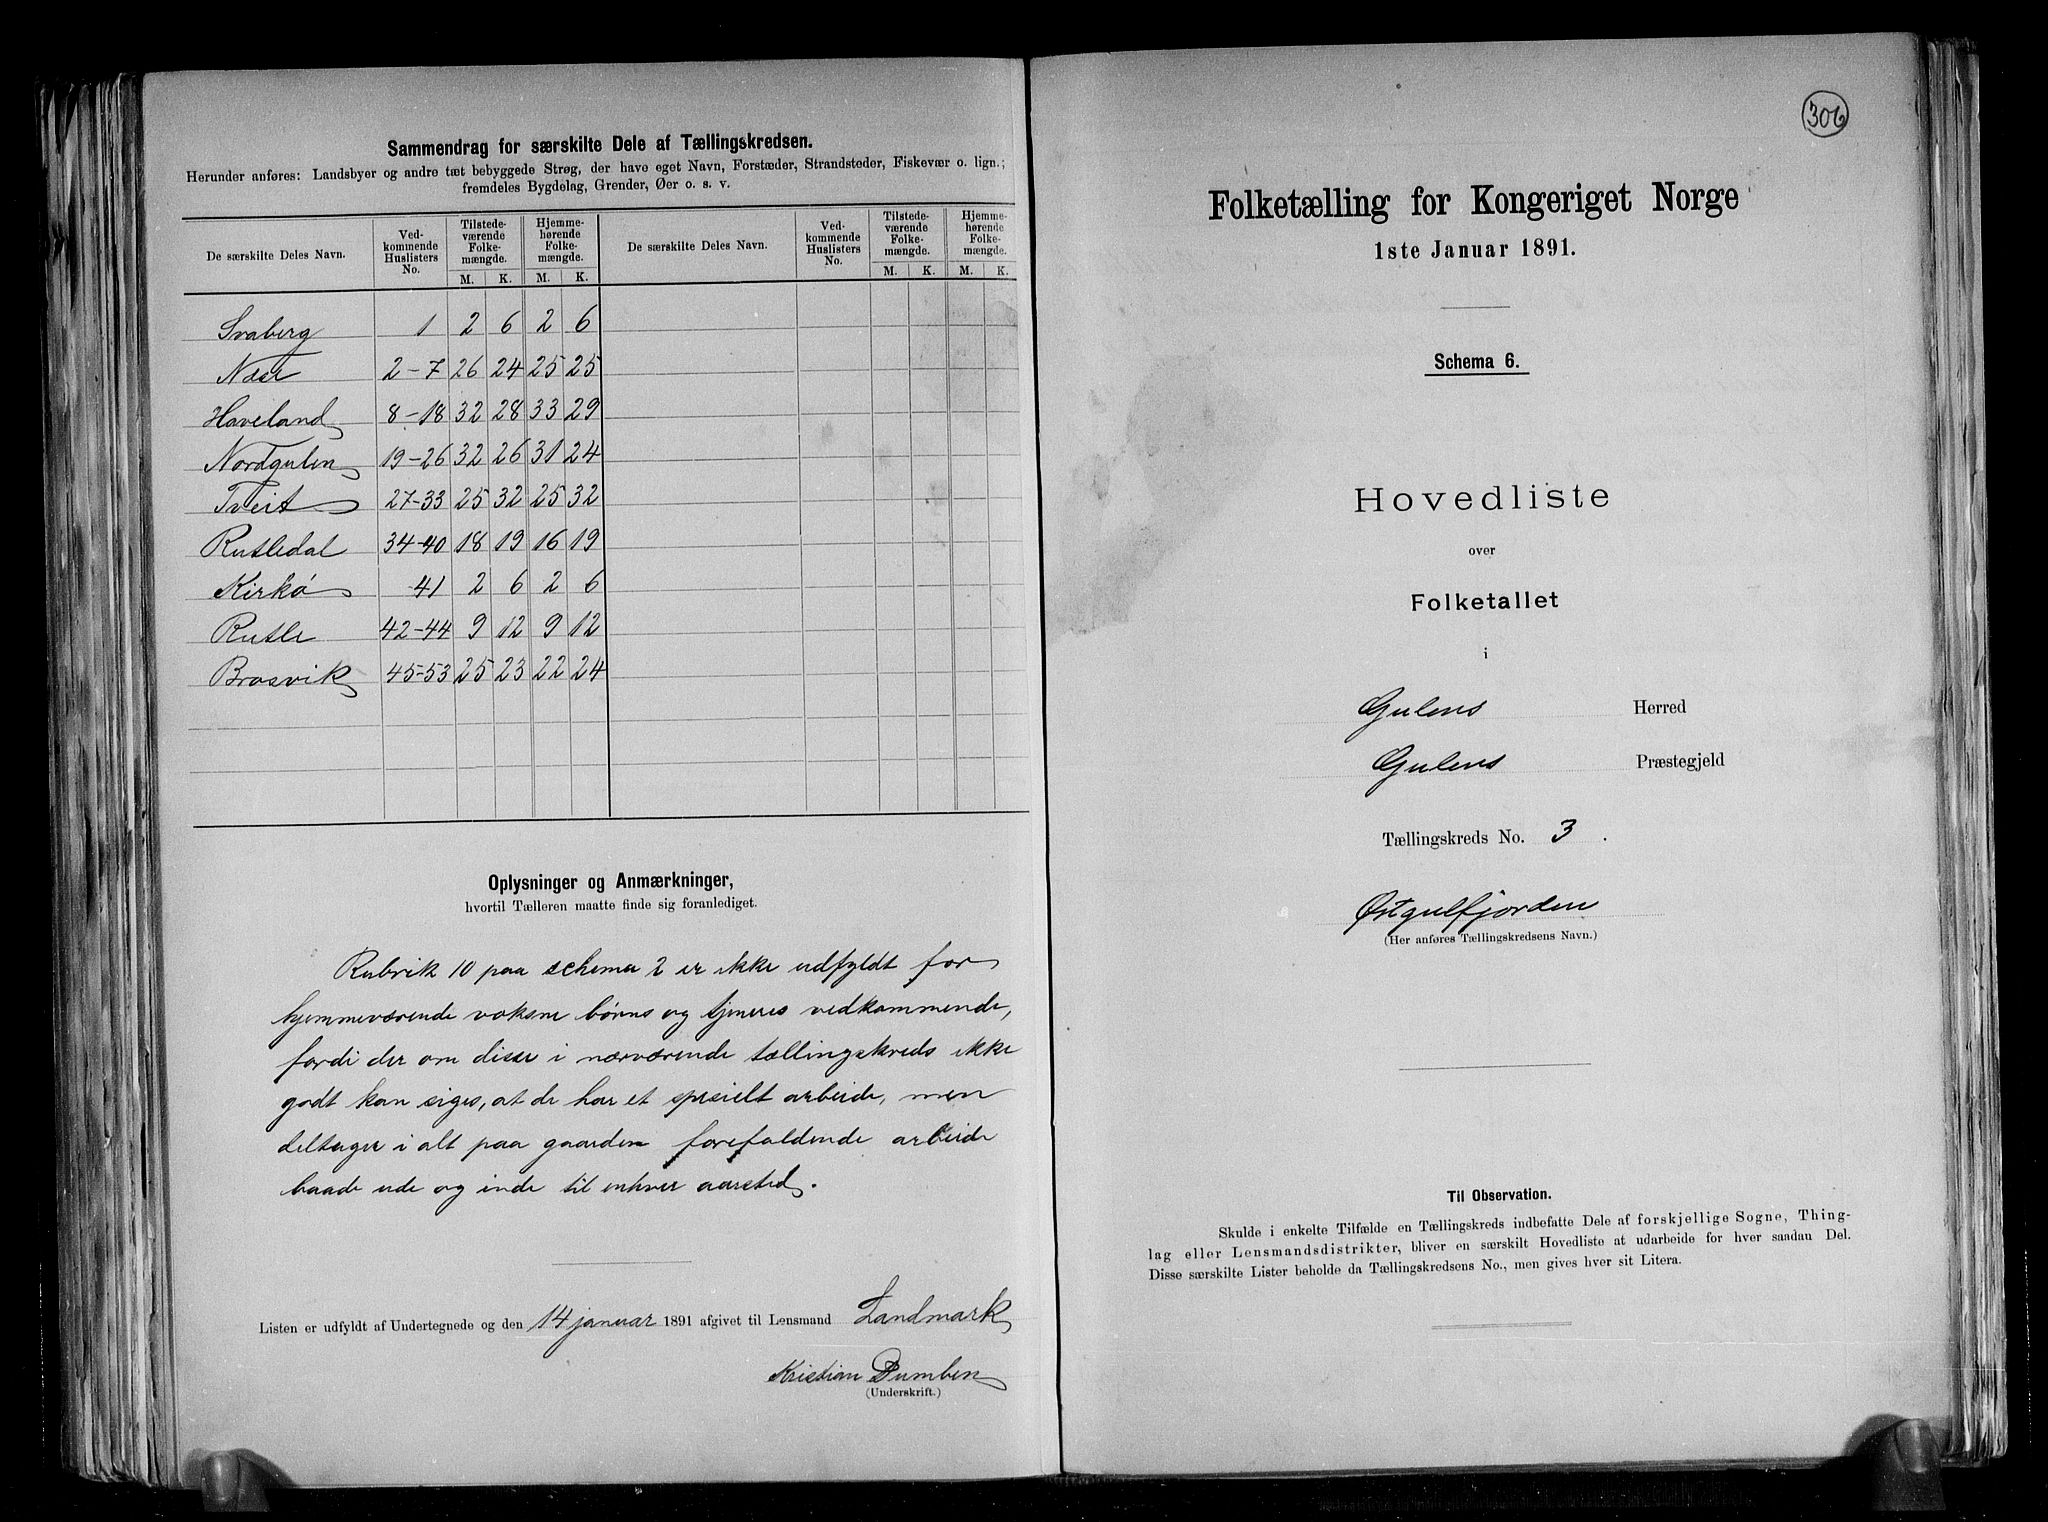 Sammendrag for særskilte Dele af Tællingskredsen.
Herunder anføres: Landsbyer og andre tæt bebyggede Strøg, der have eget Navn, Forstæder, Strandsteder, Fiskevær o. lign.;
fremdeles Bygdelag, Grender, Øer o. s. v.
De særskilte Deles Navn. Ved-kommende Huslisters No. Tilstede-værende Folke-mængde. Hjemme-hørende Folke-mængde. De særskilte Deles Navn. Ved-kommende Huslisters No. Tilstede-værende Folke-mængde. Hjemme-hørende Folke-mængde.
M. K. M. K. M. K. M. K.
Svaberg 1 2 6 2 6
Næse 2-7 26 24 25 25
Haveland 8-18 32 28 33 29
Nordgulen 19-26 32 26 31 24
Tveit 27-33 25 32 25 32
Rutledal 34-40 18 19 16 19
Kirkø 41 2 6 2 6
Rutle 42-44 9 12 9 12
Brosvik 45-53 25 23 22 24
Oplysninger og Anmærkninger,
hvortil Tælleren maatte finde sig foranlediget.
Rubrik 10 paa schema 2 er ikke udfyldt for
hjemmeværende voksne børns og tjeneres vedkommende,
fordi der om disse i nærværende tællingskreds ikke
godt kan siges, at de har et spesielt arbeide, men
deltager i alt paa gaarden forefaldende arbeide
baade ude og inde til enhver aarstid.
Listen er udfyldt af Undertegnede og den 14 januar 1891 afgivet til Lensmand Landmark
Kristian Dumben
(Underskrift.)
306
Folketælling for Kongeriget Norge
1ste Januar 1891.
Schema 6.
Hovedliste
over
Folketallet
i
Gulens Herred
Gulens Præstegjeld
Tællingskreds No. 3.
Østgulfjorden
(Her anføres Tællingskredsens Navn.)
Til Observation.
Skulde i enkelte Tilfælde en Tællingskreds indbefatte Dele af forskjellige Sogne, Thing-
lag eller Lensmandsdistrikter, bliver en særskilt Hovedliste at udarbeide for hver saadan Del.
Disse særskilte Lister beholde da Tællingskredsens No., men gives hver sit Litera.